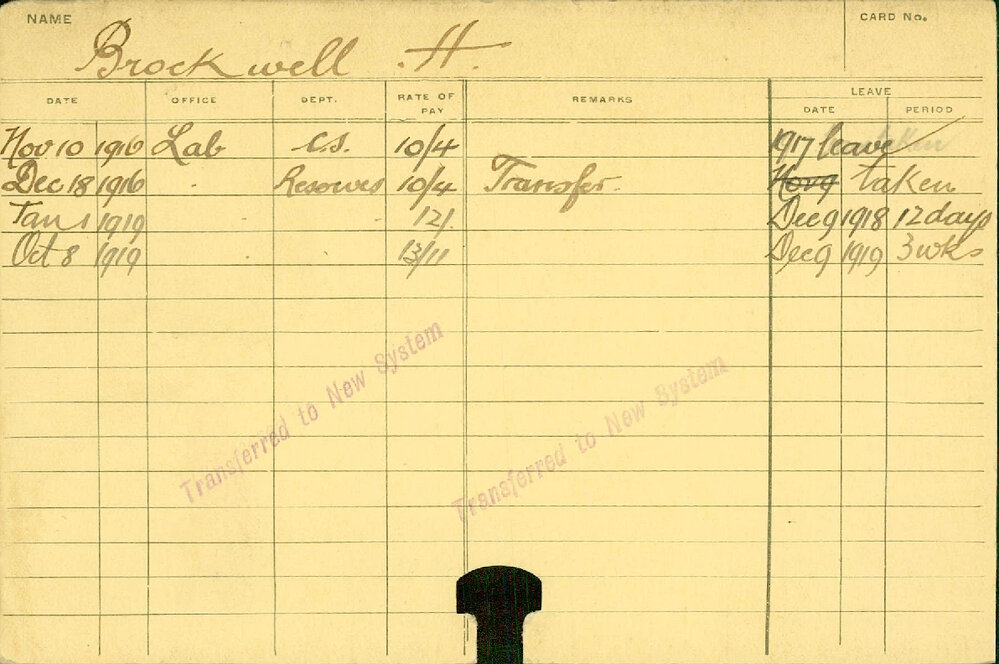 NAME
CARD No.
Brockwell H.
DATE OFFICE DEPT. RATE OF PAY REMARKS LEAVE
DATE PERIOD
Nov 10 1916 Lab C.S. 10/4 1917 leave
Dec 18 1916 " Reserves 10/4 Transfer. taken
Jan 1 1919 " " 12/. Dec 9 1918 12 days
Oct 8 1919 " 13/11 Dec 9 1919 3 wks
Transferred to New System
Transferred to New System